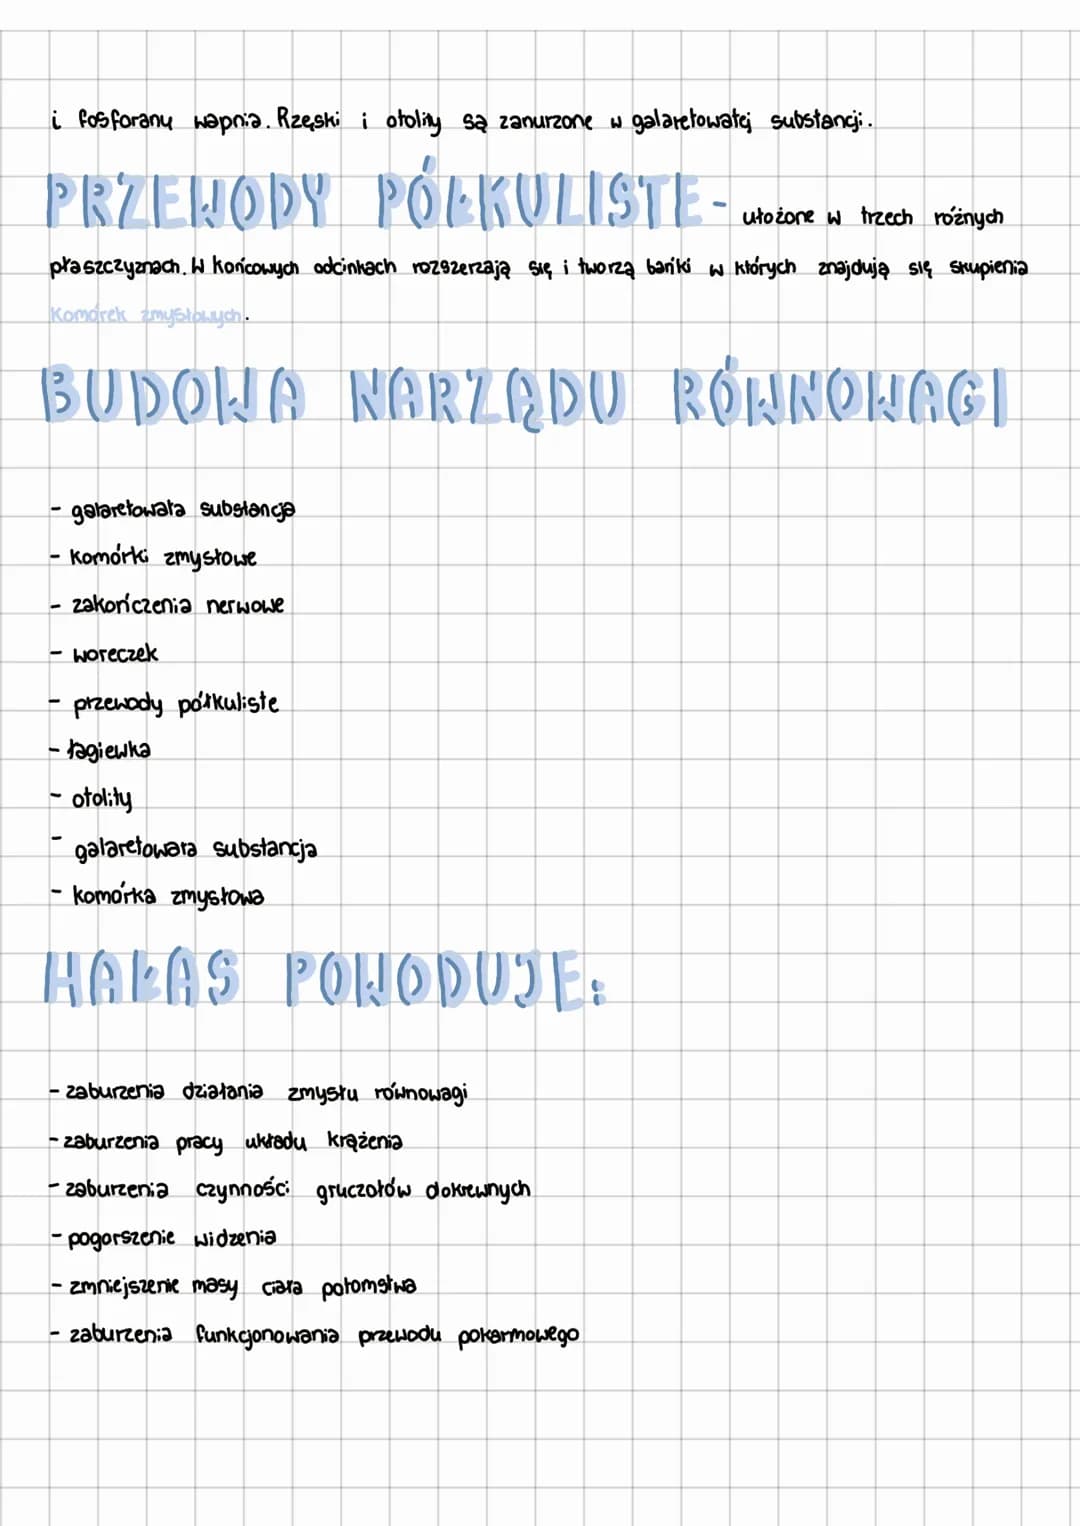 i fosforany wapnia. Rzęski i otolity są zanurzone w galaretowatej substancji.
PRZEWODY PÓŁKULISTE - ułożone w trzech różnych
płaszczyznach. W końcowych odcinkach rozszerzają się i tworzą bańki w których znajdują się skupienia
komórek zmysłowych.
BUDOWA NARZĄDU RÓWNOWAGI
- galaretowata substancja
- komórki zmysłowe
- zakończenia nerwowe
- woreczek
- przewody półkuliste
- łagiewka
- otolity
- galaretowata substancja
- komórka zmysłowa
HAŁAS POWODUJE:
- zaburzenia działania zmysłu równowagi
- zaburzenia pracy układu krążenia
- zaburzenia czynności gruczołów dokrewnych
- pogorszenie widzenia
- zmniejszenie masy ciała potomstwa
- zaburzenia funkcjonowania przewodu pokarmowego